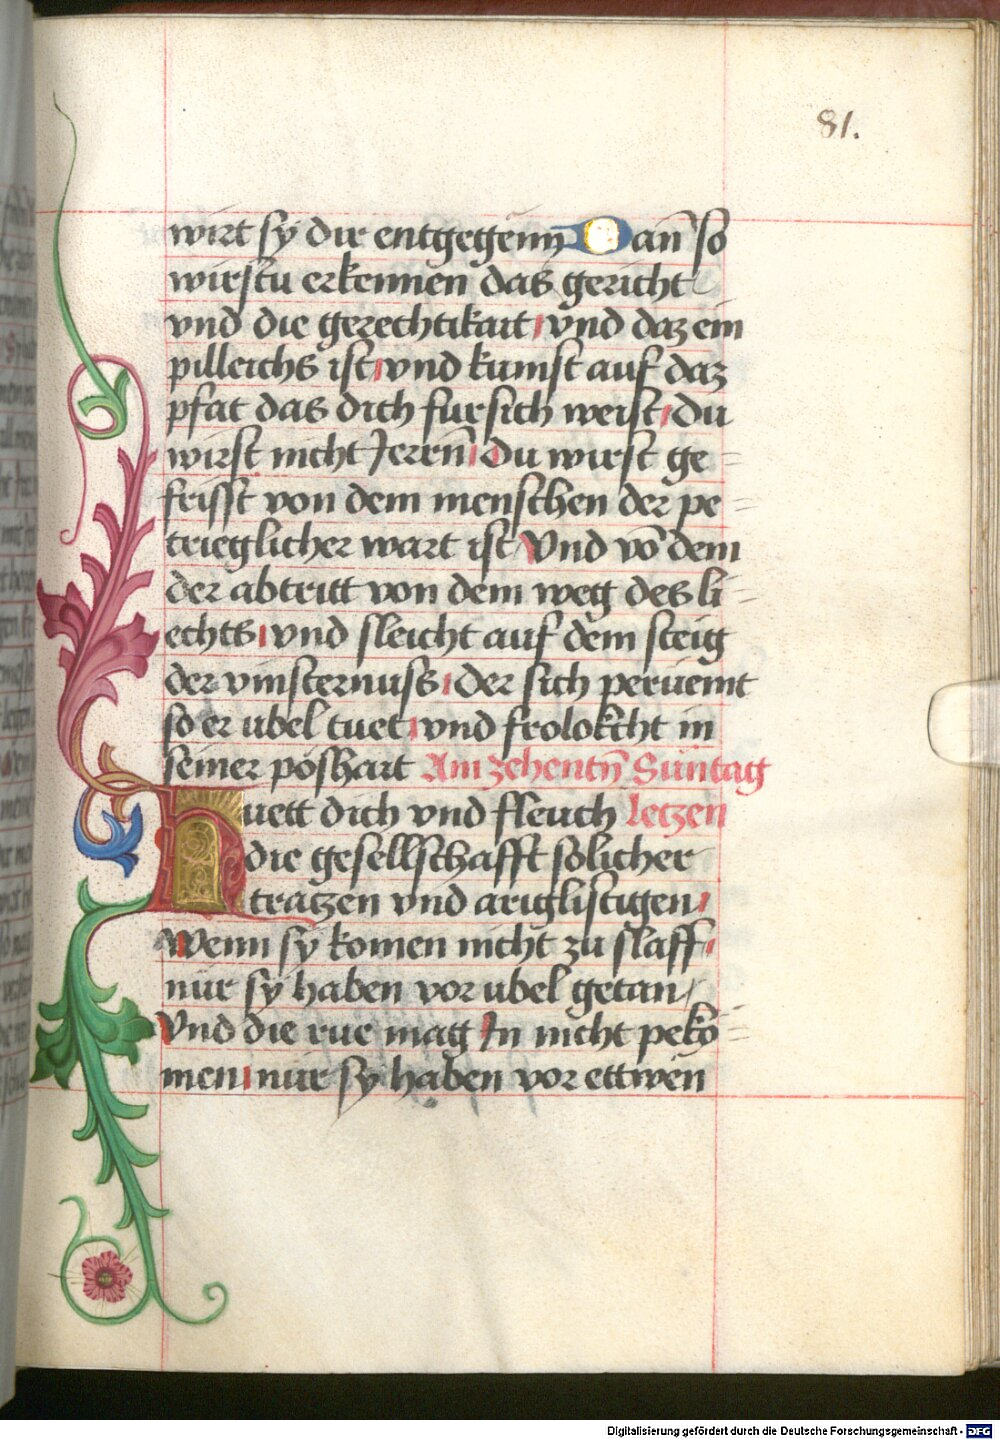 81.
wirt sy dir entgegenn Dan̄ so
wirstu erkennen das gericht
vnd die gerechtikait vnd daz ein
pilleichs ist vnd kumst auf daz
pfat das dich fursich weist du
wirst nicht Jerrn̄ Du wirst ge=
frisst von dem menschen der pe=
trieglicher wart ist Vnd vō dem
der abtritt von dem weg des li=
echts vnd sleicht auf dem steig
der vinsternuss der sich peruemt
so er ubel tuet vnd frolokcht in
seiner poshart Am zehentn̄ Suntag
Huett dich vnd fleuch letzen
die gesellschafft solicher
tratzen vnd arglistigen
Wenn sy komen nicht zu slaff
nur sy haben vor ubel getan
Vnd die rue mag In nicht peko=
men nur sy haben vor ettwen
Digitalisierung gefördert durch die Deutsche Forschungsgemeinschaft - DFG